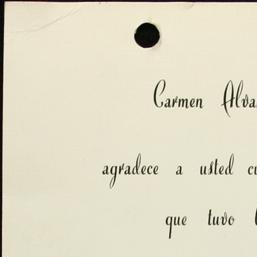 Carmen
agradece a usted
que tuvo